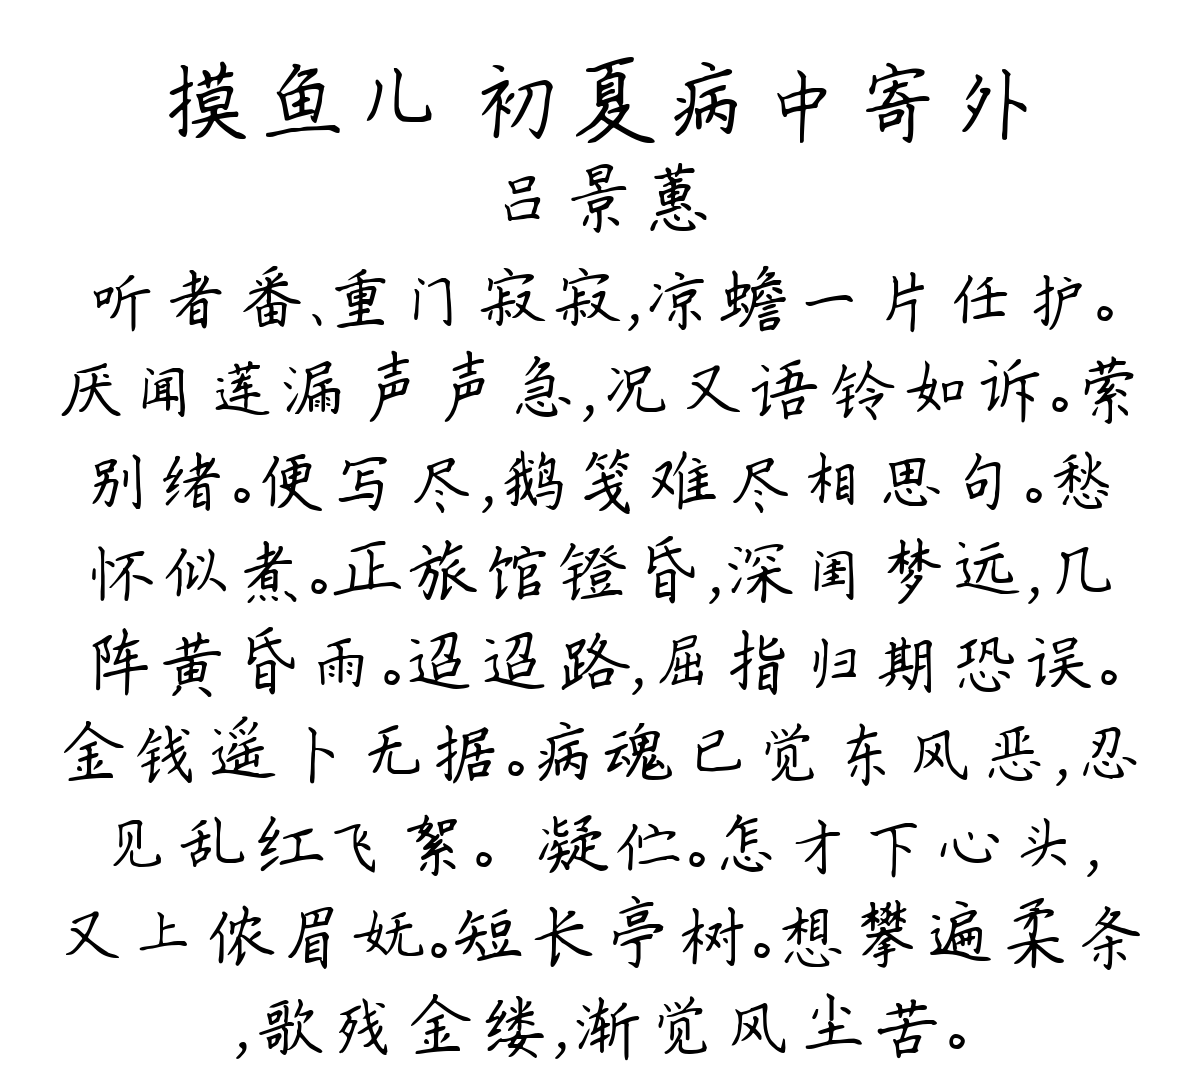 摸鱼儿 初夏病中寄外
吕景蕙
听者番、重门寂寂,凉蟾一片任护。
厌闻莲漏声声急,况又语铃如诉。萦
别绪。便写尽,鹅笺难尽相思句。愁
怀似煮。正旅馆镫昏,深闺梦远,几
阵黄昏雨。迢迢路,屈指归期恐误。
金钱遥卜无据。病魂已觉东风恶,忍
见乱红飞絮。凝伫。怎才下心头,
又上侬眉妩。短长亭树。想攀遍柔条
,歌残金缕,渐觉风尘苦。